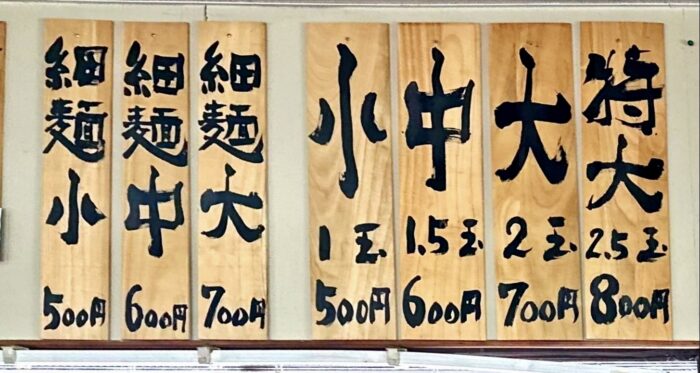 細麺小
500円
細麺中
600円
細麺大
700円
小
1玉
500円
中
1.5玉
600円
大
2玉
700円
特大
2.5玉
800円